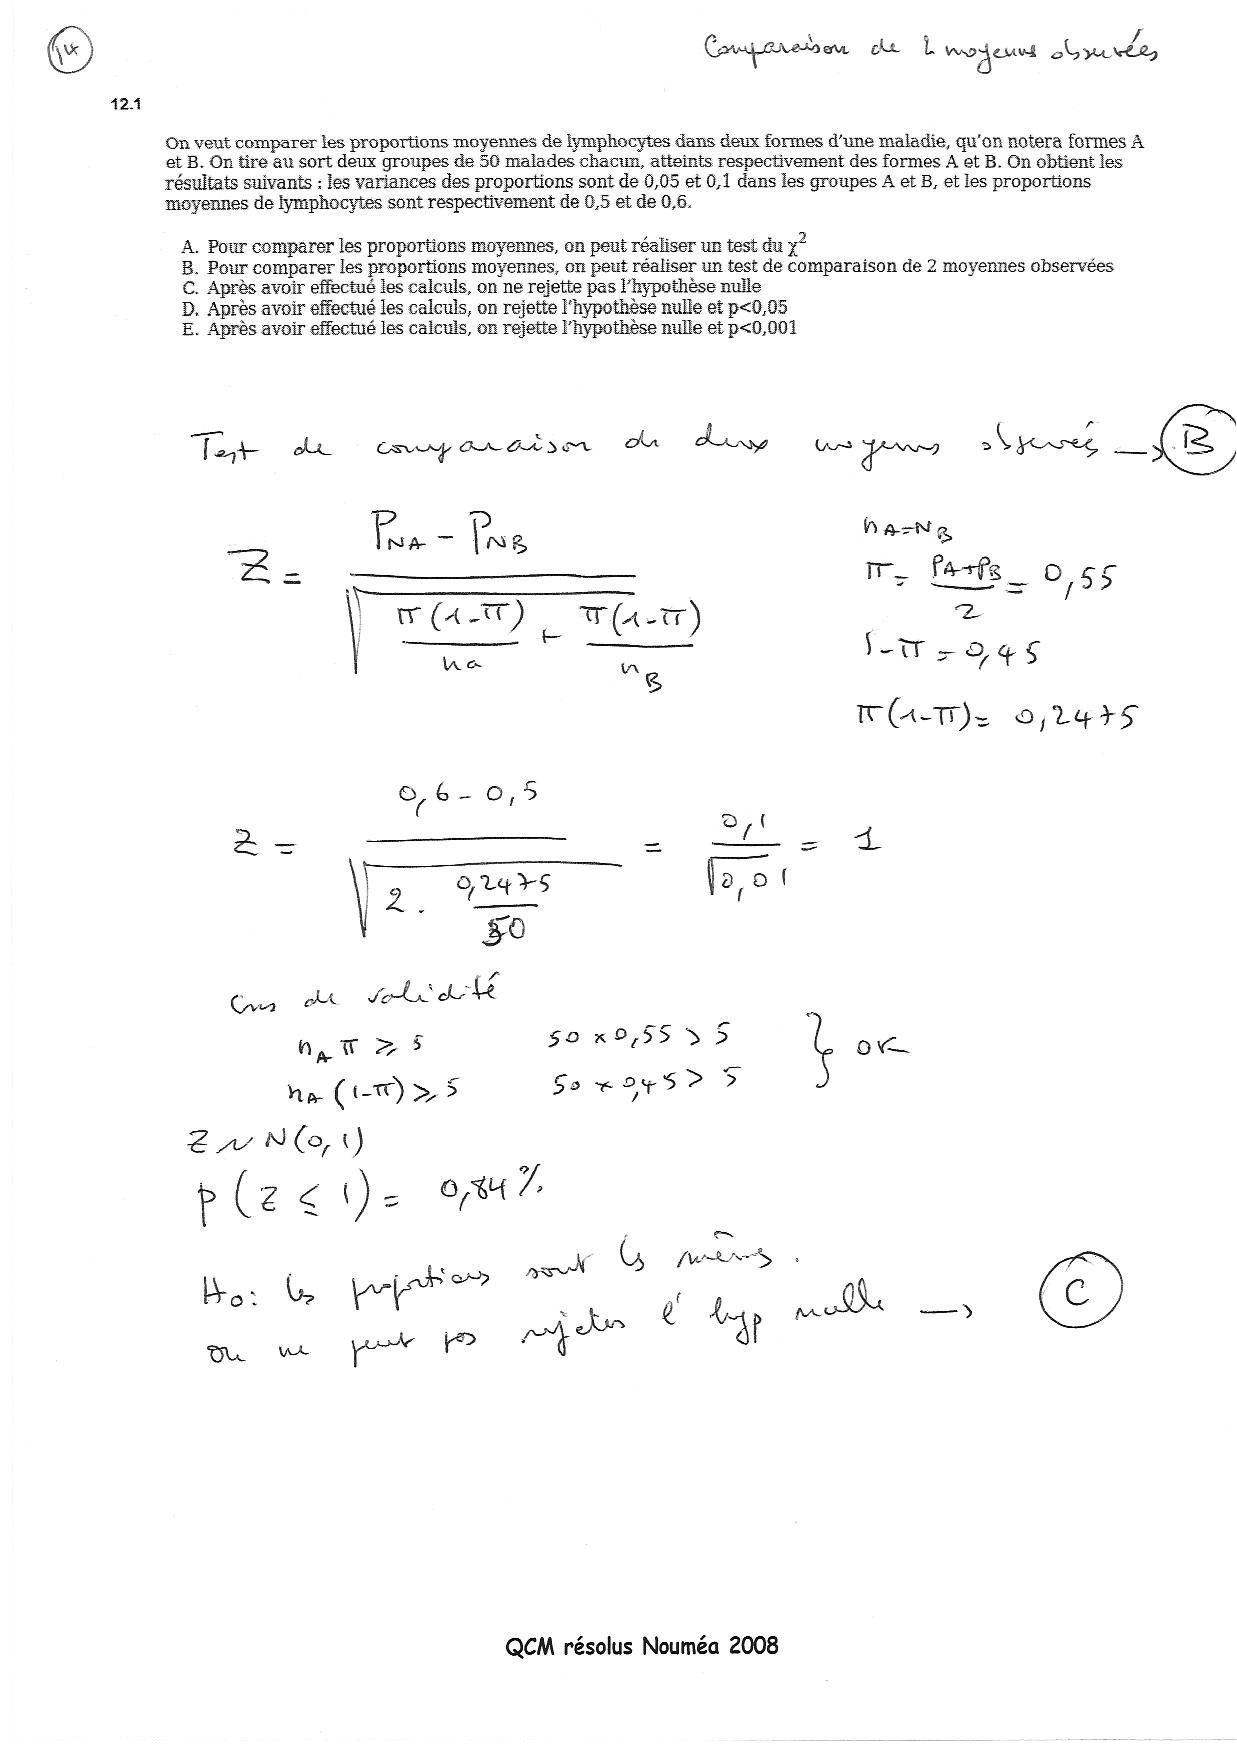 14
Comparaison de 2 moyennes observées
12.1
On veut comparer les proportions moyennes de lymphocytes dans deux formes d'une maladie, qu'on notera formes A
et B. On tire au sort deux groupes de 50 malades chacun, atteints respectivement des formes A et B. On obtient les
résultats suivants : les variances des proportions sont de 0,05 et 0,1 dans les groupes A et B, et les proportions
moyennes de lymphocytes sont respectivement de 0,5 et de 0,6.
A. Pour comparer les proportions moyennes, on peut réaliser un test du χ²
B. Pour comparer les proportions moyennes, on peut réaliser un test de comparaison de 2 moyennes observées
C. Après avoir effectué les calculs, on ne rejette pas l'hypothèse nulle
D. Après avoir effectué les calculs, on rejette l'hypothèse nulle et p<0,05
E. Après avoir effectué les calculs, on rejette l'hypothèse nulle et p<0,001
Test de comparaison de deux moyennes observées → B
Z = (P_NA - P_NB) / √(π(1-π)/na + π(1-π)/n_B)
n_A = N_B
π = (P_A + P_B)/2 = 0,55
1-π = 0,45
π(1-π) = 0,2475
Z = (0,6 - 0,5) / √(2 . 0,2475/50) = 0,1/√0,01 = 1
de validité
n_A π ≥ 5 50 x 0,55 > 5 } OK
n_A (1-π) ≥ 5 50 x 0,45 > 5
Z ~ N(0,1)
P(Z ≤ 1) = 0,84 %
Ho: les proportions sont les mêmes.
on ne peut pas rejeter l'hyp nulle → C
QCM résolus Nouméa 2008